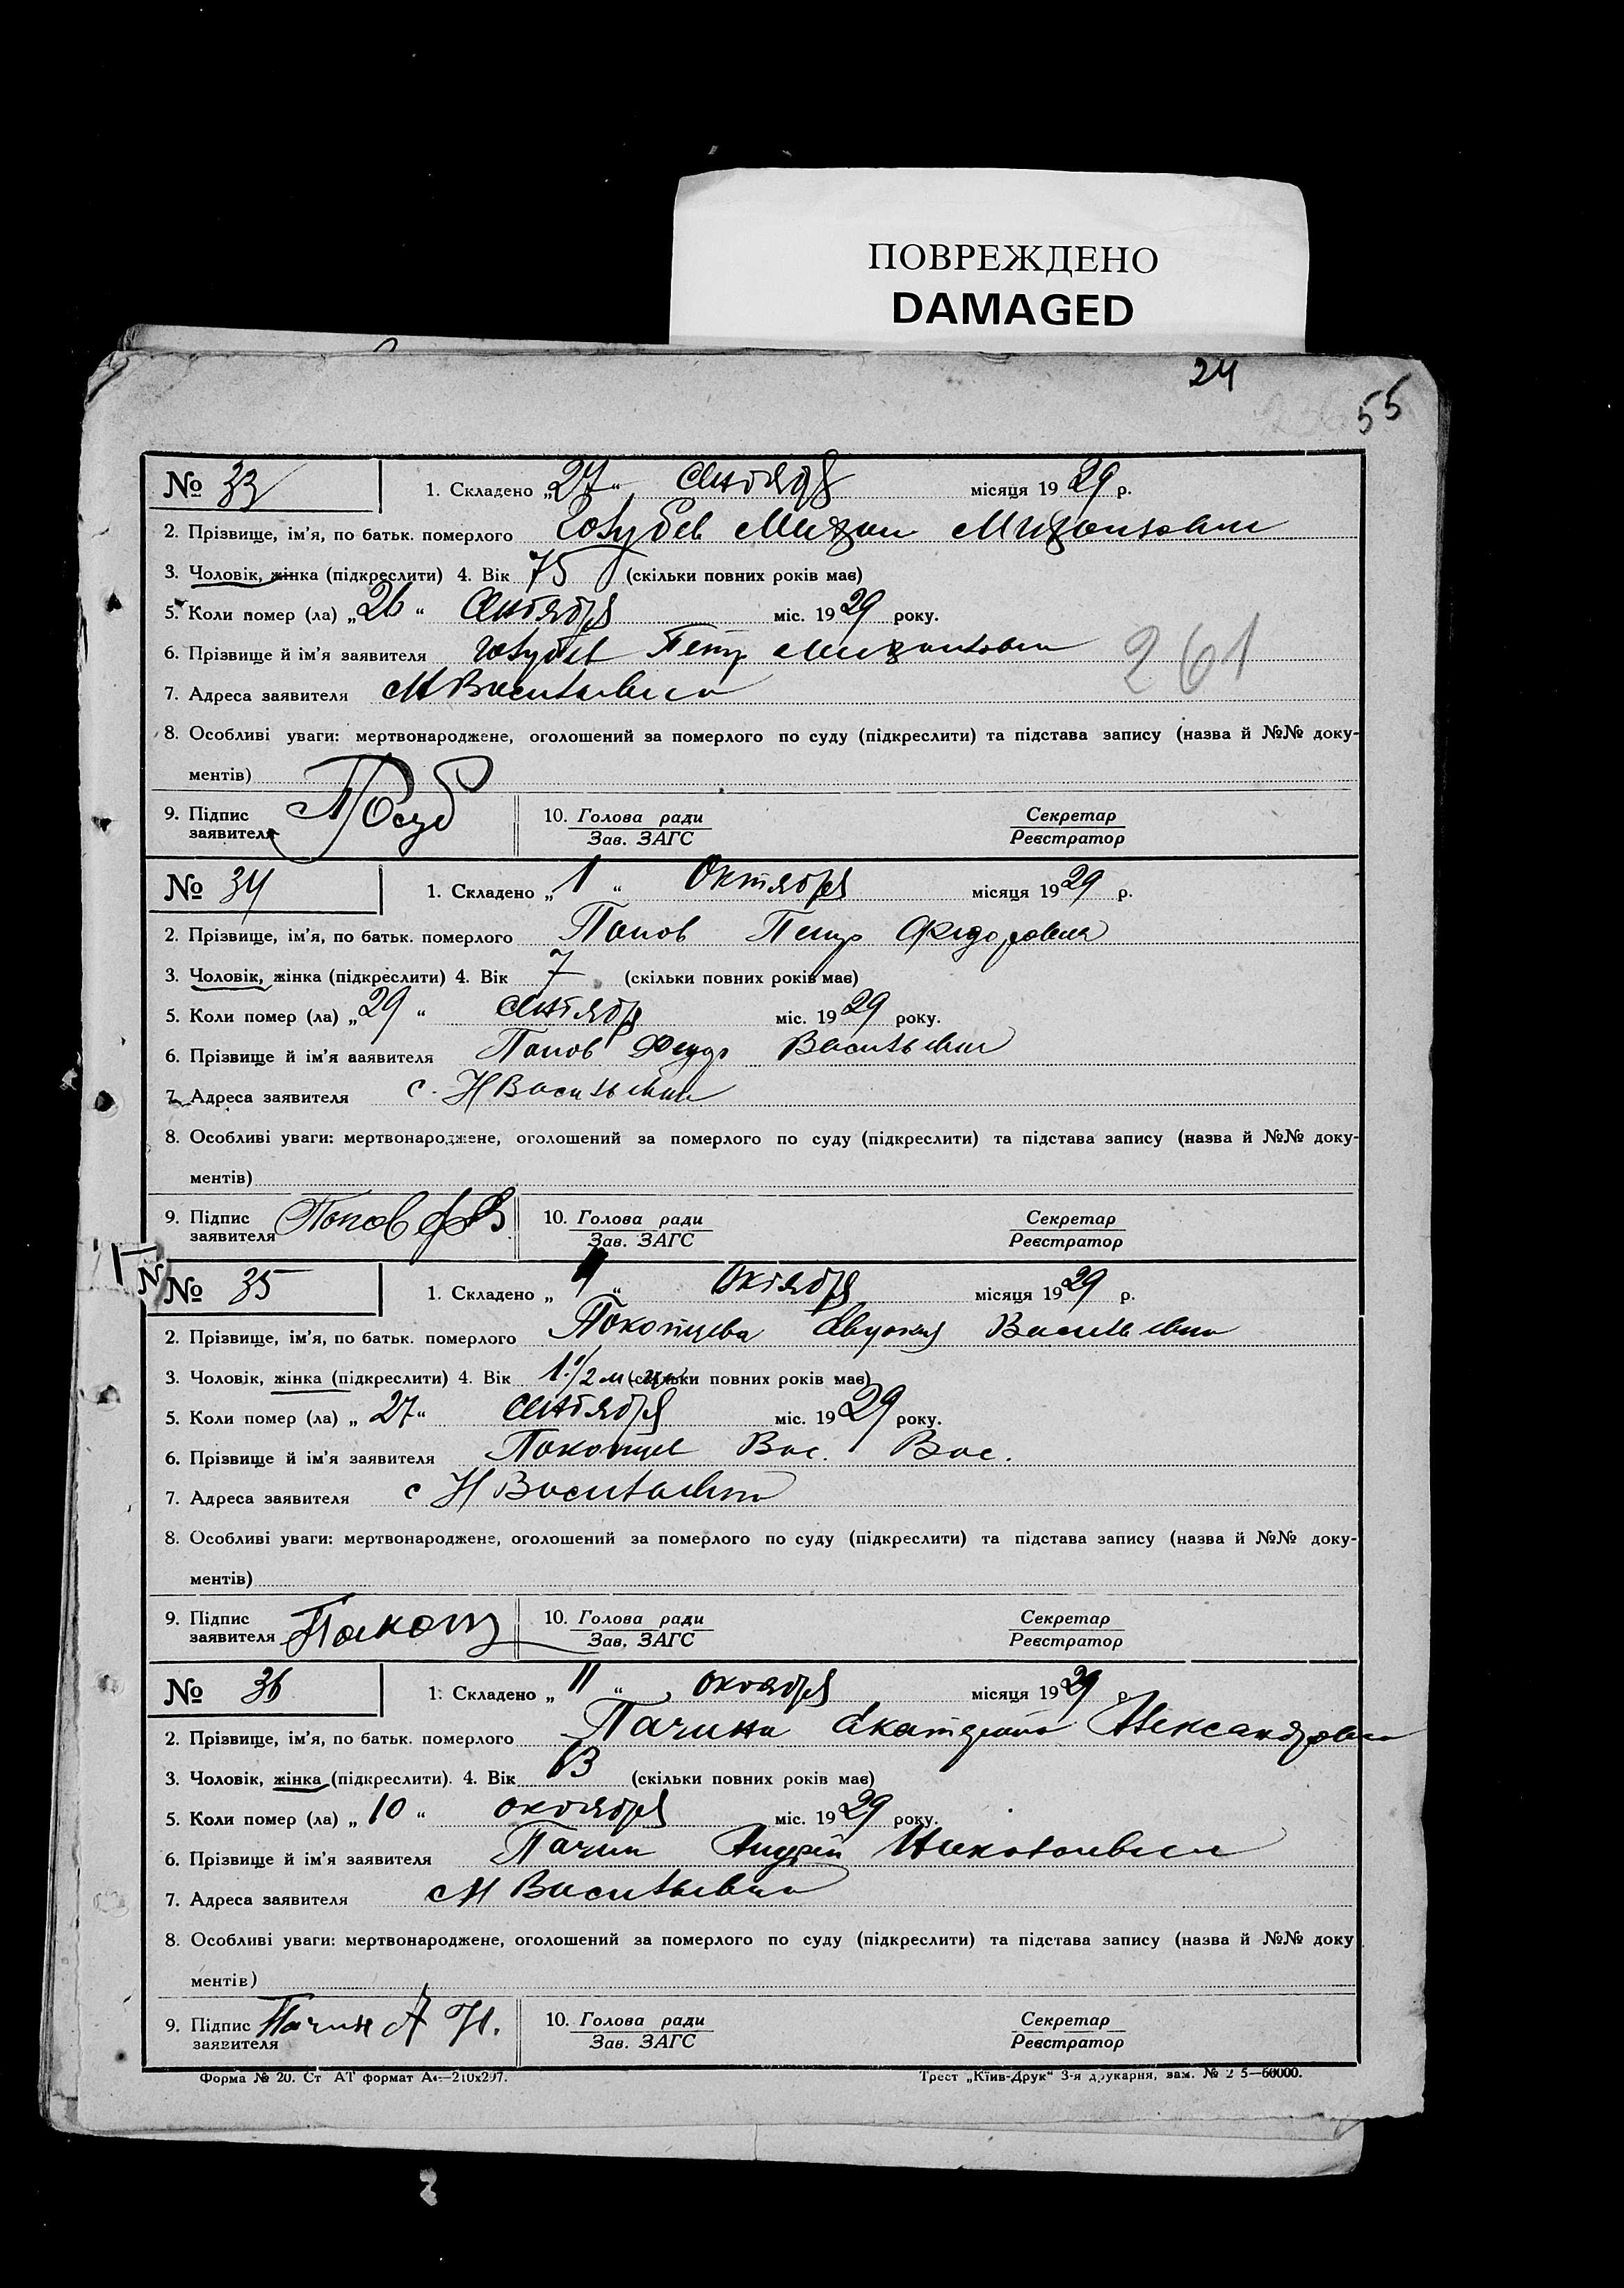 ПОВРЕЖДЕНО
DAMAGED
24
55
№ 33 1. Складено „27“ Сентября місяця 1929 р.
2. Прізвище, ім'я, по батьк. померлого Голубев
3. Чоловік, жінка (підкреслити) 4. Вік 75 (скільки повних років має)
5. Коли помер (ла) „26“ Сентября міс. 1929 року.
6. Прізвище й ім'я заявителя Голубев Петр
261
7. Адреса заявителя Васильевка
8. Особливі уваги: мертвонароджене, оголошений за померлого по суду (підкреслити) та підстава запису (назва й №№ доку-
ментів)
9. Підпис заявителя 10. Голова ради Секретар
Зав. ЗАГС Реєстратор
№ 34 1. Складено „1“ Октября місяця 1929 р.
2. Прізвище, ім'я, по батьк. померлого Попов Петр Федорович
3. Чоловік, жінка (підкреслити) 4. Вік 7 (скільки повних років має)
5. Коли помер (ла) „29“ Сентября міс. 1929 року.
6. Прізвище й ім'я заявителя Попов Федор Васильевич
7. Адреса заявителя с. Н Васильевка
8. Особливі уваги: мертвонароджене, оголошений за померлого по суду (підкреслити) та підстава запису (назва й №№ доку-
ментів)
9. Підпис заявителя Попов ФВ 10. Голова ради Секретар
Зав. ЗАГС Реєстратор
№ 35 1. Складено „1“ Октября місяця 1929 р.
2. Прізвище, ім'я, по батьк. померлого Васильевна
3. Чоловік, жінка (підкреслити) 4. Вік 1 1/2 (скільки повних років має)
5. Коли помер (ла) „27“ Сентября міс. 1929 року.
6. Прізвище й ім'я заявителя Вас. Вас.
7. Адреса заявителя с Н Васильевка
8. Особливі уваги: мертвонароджене, оголошений за померлого по суду (підкреслити) та підстава запису (назва й №№ доку-
ментів)
9. Підпис заявителя 10. Голова ради Секретар
Зав. ЗАГС Реєстратор
№ 36 1. Складено „11“ октября місяця 1929 р.
2. Прізвище, ім'я, по батьк. померлого Пачина Екатерина Александровна
3. Чоловік, жінка (підкреслити). 4. Вік 63 (скільки повних років має)
5. Коли помер (ла) „10“ октября міс. 1929 року.
6. Прізвище й ім'я заявителя Пачин Андрей Николаевич
7. Адреса заявителя с Н Васильевка
8. Особливі уваги: мертвонароджене, оголошений за померлого по суду (підкреслити) та підстава запису (назва й №№ доку
ментів)
9. Підпис заявителя Пачин А Н. 10. Голова ради Секретар
Зав. ЗАГС Реєстратор
Форма № 20. Ст АТ формат А4—210х297. Трест „Київ-Друк“ 3-я друкарня, зам. № 2 5—60000.